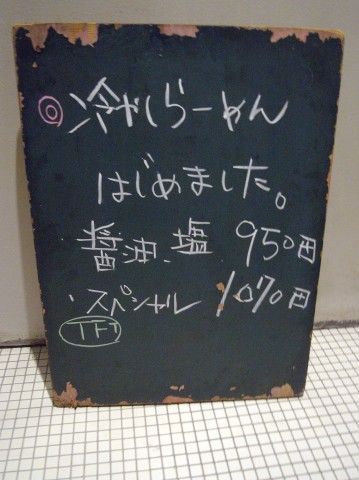 ◎冷やしらーめん
はじめました。
醤油、塩 950円
・スペシャル 1070円